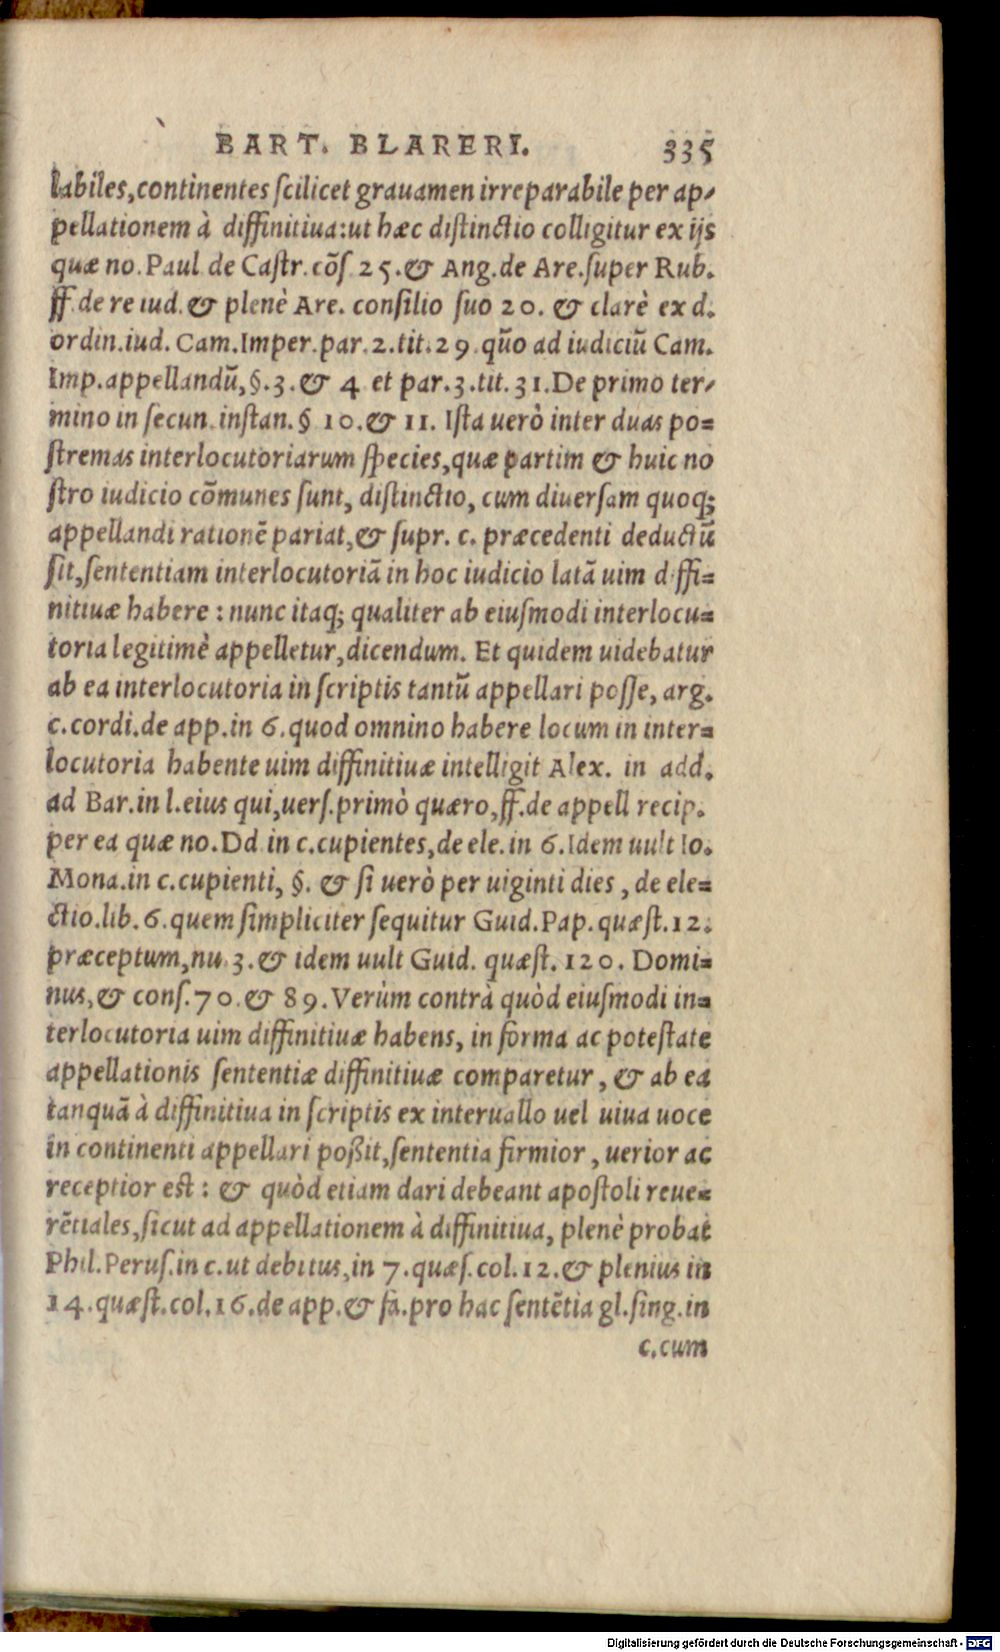 BART. BLARERI. 335
labiles, continentes scilicet grauamen irreparabile per ap-
pellationem à diffinitiua: ut hæc distinctio colligitur ex ijs
quæ no. Paul de Castr. cõs. 25. & Ang. de Are. super Rub.
ff. de re iud. & plenè Are. consilio suo 20. & clarè ex d.
ordin. iud. Cam. Imper. par. 2. tit. 29. quõ ad iudiciũ Cam.
Imp. appellandũ, §. 3. & 4 et par. 3. tit. 31. De primo ter-
mino in secun. instan. § 10. & 11. Ista uerò inter duas po=
stremas interlocutoriarum species, quæ partim & huic no
stro iudicio cõmunes sunt, distinctio, cum diuersam quoq;
appellandi rationẽ pariat, & supr. c. præcedenti deductũ
sit, sententiam interlocutoriã in hoc iudicio latã uim diffi=
nitiuæ habere: nunc itaq; qualiter ab eiusmodi interlocu=
toria legitimè appelletur, dicendum. Et quidem uidebatur
ab ea interlocutoria in scriptis tantũ appellari posse, arg.
c. cordi. de app. in 6. quod omnino habere locum in inter=
locutoria habente uim diffinitiuæ intelligit Alex. in add.
ad Bar. in l. eius qui, uers. primò quæro, ff. de appell recip.
per ea quæ no. Dd in c. cupientes, de ele. in 6. Idem uult Io.
Mona. in c. cupienti, §. & si uerò per uiginti dies, de ele=
ctio. lib. 6. quem simpliciter sequitur Guid. Pap. quæst. 12.
præceptum, nu. 3. & idem uult Guid. quæst. 120. Domi=
nus, & cons. 70. & 89. Verùm contrà quòd eiusmodi in=
terlocutoria uim diffinitiuæ habens, in forma ac potestate
appellationis sententiæ diffinitiuæ comparetur, & ab ea
tanquã à diffinitiua in scriptis ex interuallo uel uiua uoce
in continenti appellari poßit, sententia firmior, uerior ac
receptior est: & quòd etiam dari debeant apostoli reue=
rẽtiales, sicut ad appellationem à diffinitiua, plenè probat
Phil. Perus. in c. ut debitus, in 7. quæs. col. 12. & plenius in
14. quæst. col. 16. de app. & fa. pro hac sentẽtia gl. sing. in
c. cum
Digitalisierung gefördert durch die Deutsche Forschungsgemeinschaft - DFG